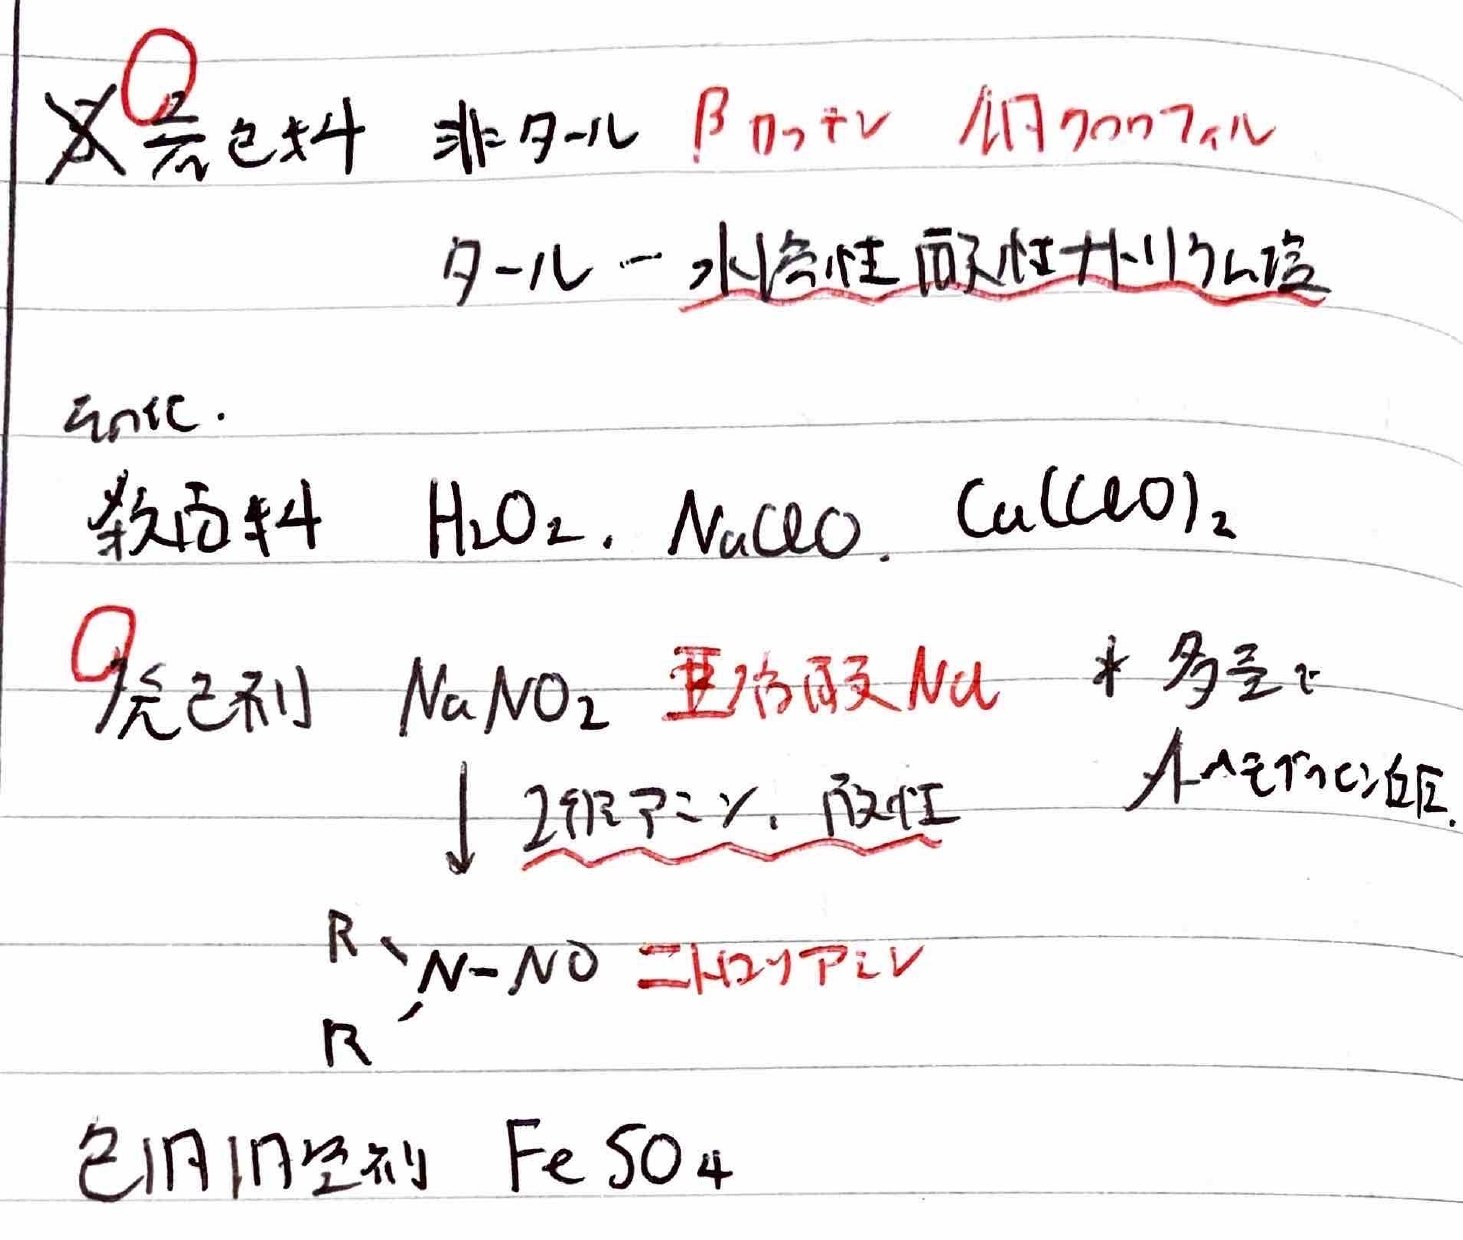 着色料 非タール βカロテン 銅クロロフィル
タール ー 水溶性 酸性ナトリウム塩
その他.
漂白料 H₂O₂. NaClO. Ca(ClO)₂
発色剤 NaNO₂ 亜硝酸Na * 多量で
↓ 2級アミン. 酸性 メトヘモグロビン血症.
R
N-NO ニトロソアミン
R
色調調整剤 FeSO₄